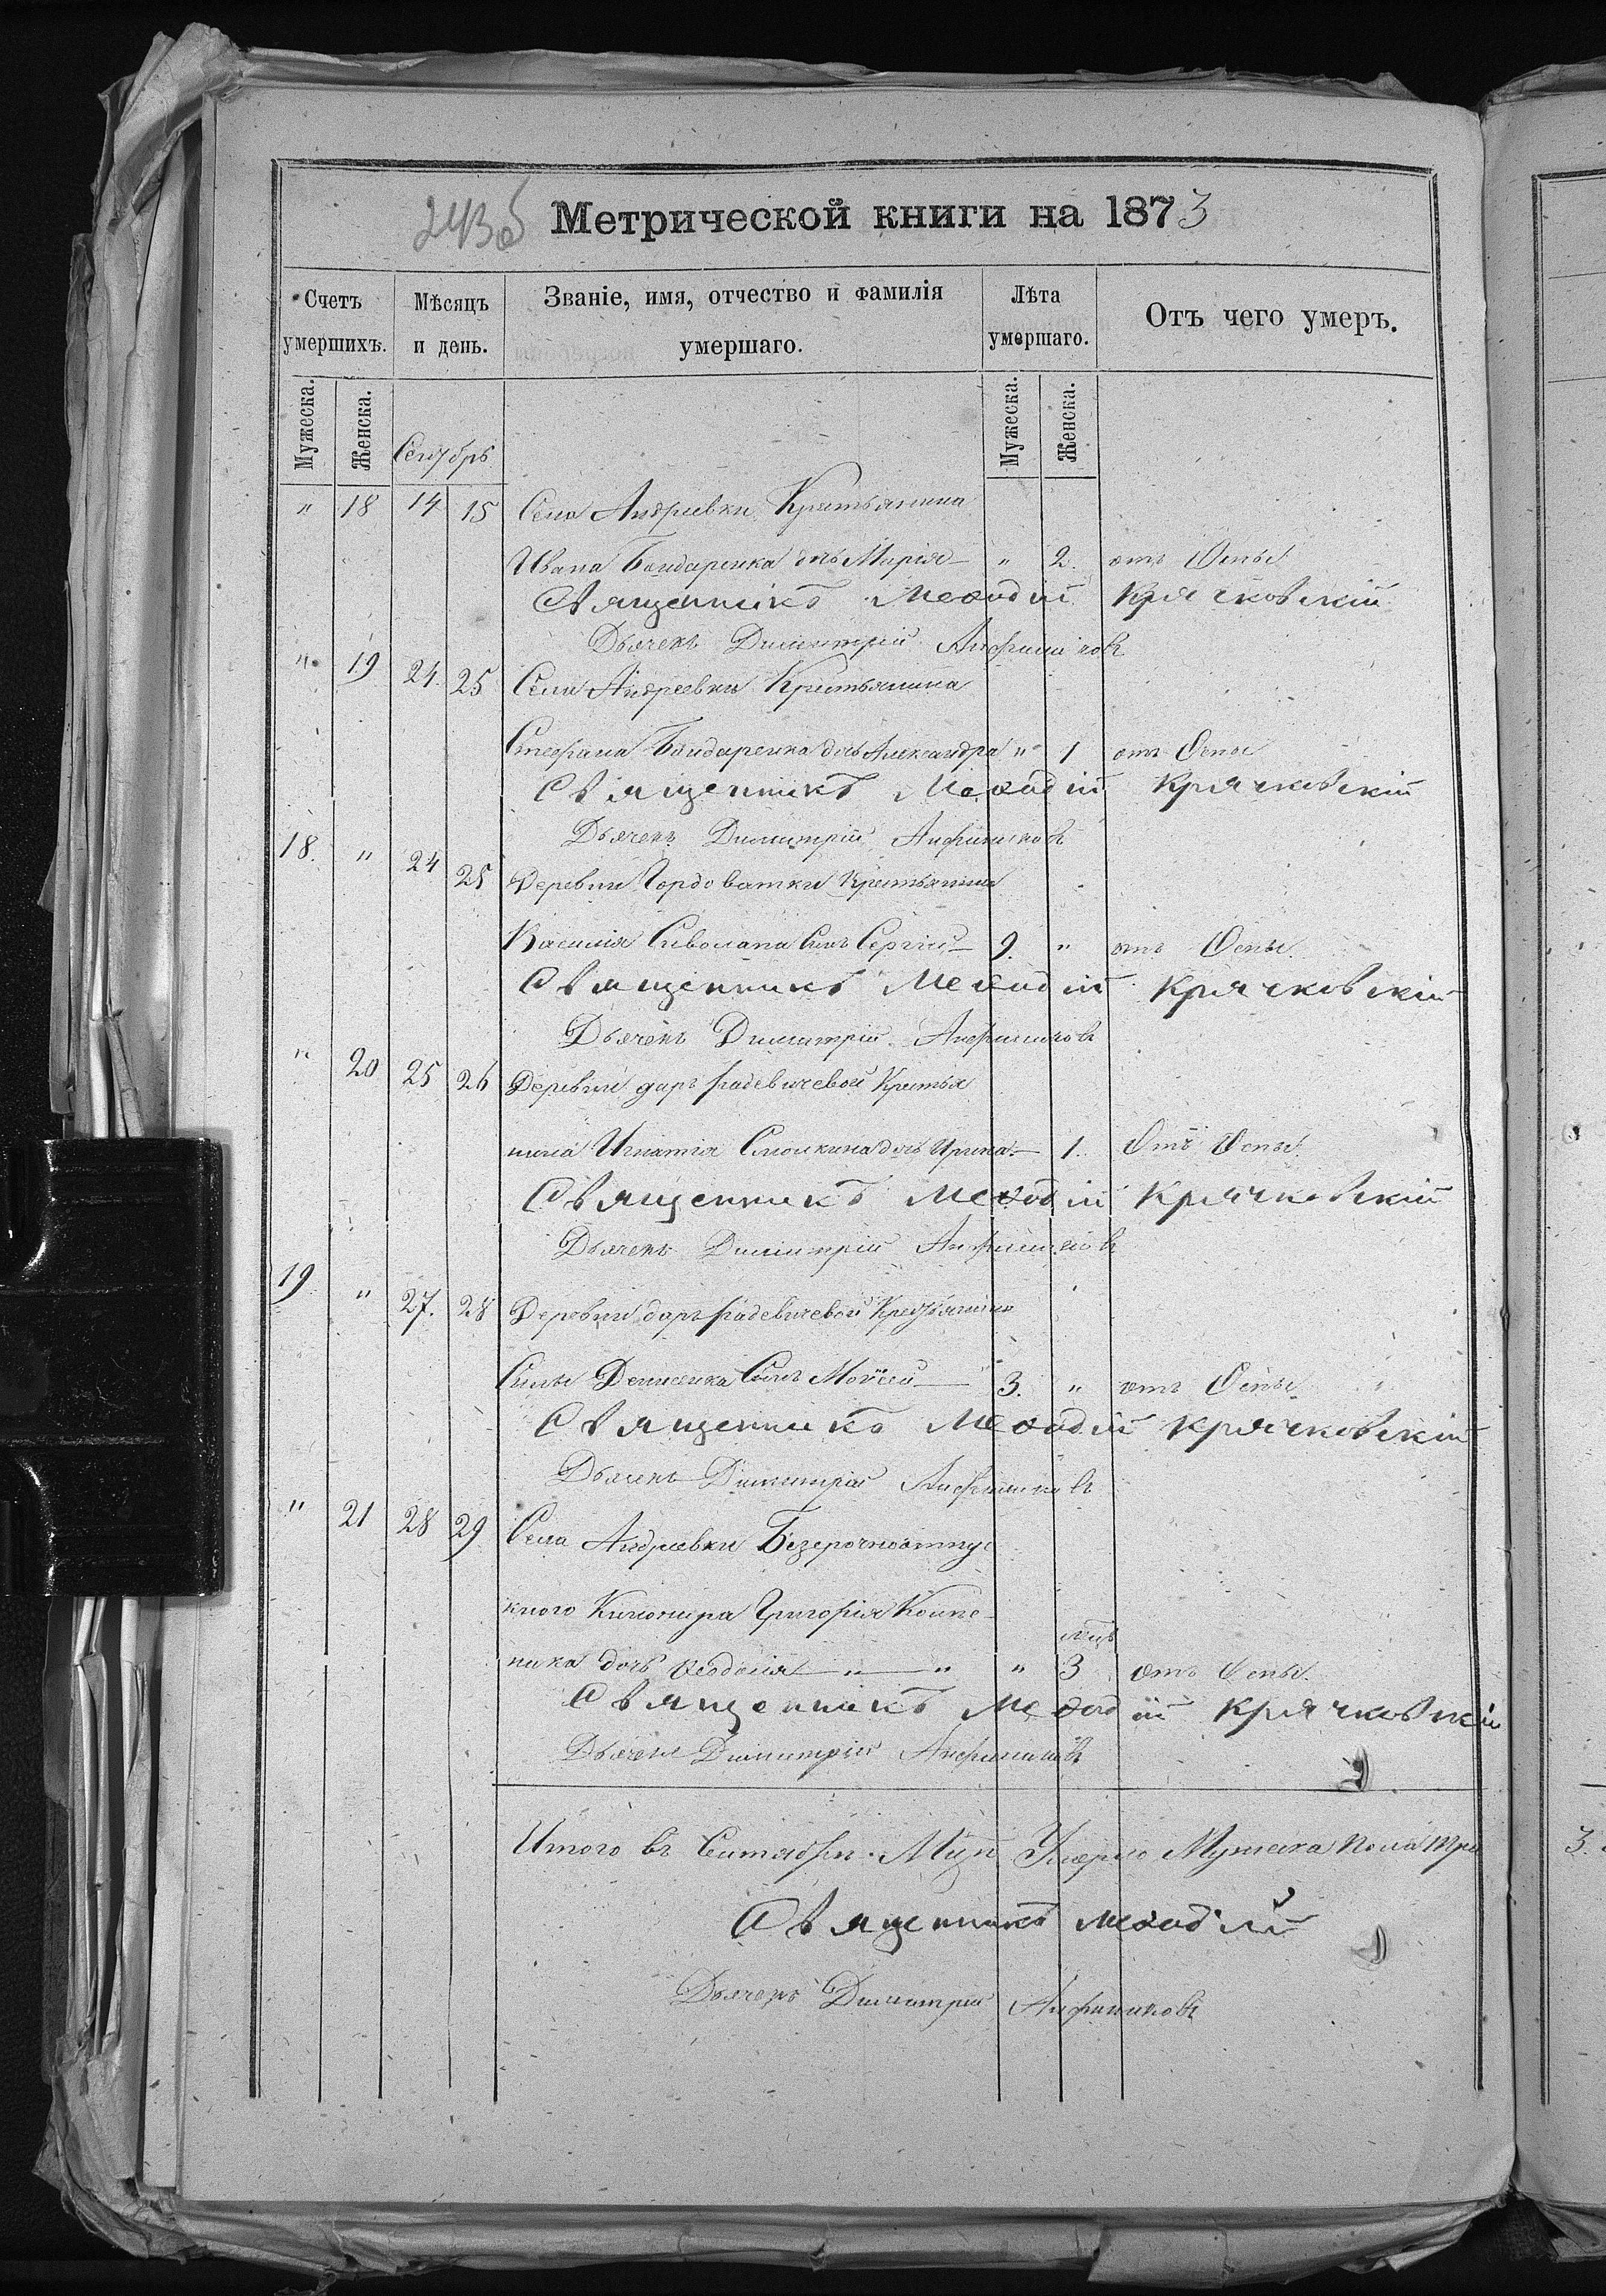 243об Метрической книги на 1873
Счетъ умершихъ. Мѣсяцъ и день. Званіе, имя, отчество и фамилія умершаго. Лѣта умершаго. Отъ чего умеръ.
Мужеска. Женска. Сентябрь Мужеска. Женска.
" 18 14 15 Села Андреевки Крестьянина
Ивана Бондаренка дочь Марія " 2. отъ Оспы
Священникъ Меѳодій Крячковскій
Дьячекъ Димитрій
" 19 24. 25 Села Андреевки Крестьянина
Стефана Бондаренка дочь Александра " 1 отъ Оспы
Священникъ Меѳодій Крячковскій
Дьячекъ Димитрій
18. " 24 25 Деревни Гордоватки Крестьянина
Василія Сиволапа Сынъ Сергій 9. " отъ Оспы.
Священникъ Меѳодій Крячковскій
Дьячекъ Димитрій
" 20 25 26 Деревни Крестья
нина Игнатія Смолкина дочь Ирина 1. Отъ Оспы.
Священникъ Меѳодій Крячковскій
Дьячекъ Димитрій
19. " 27. 28 Деревни Крестьянина
Силы Денисенка Сынъ Моисей 3. " отъ Оспы.
Священникъ Меѳодій Крячковскій
Дьячекъ Димитрій
" 21 28 29 Села Андреевки Безсрочноотпус
кного Григорія
дочь Ѳеодосія " " " 3 отъ Оспы.
Священникъ Меѳодій Крячковскій
Дьячекъ Димитрій
Итого въ Сентябрѣ Мцѣ Умерло Мужеска пола три
Священникъ Меѳодій
Дьячекъ Димитрій
3.